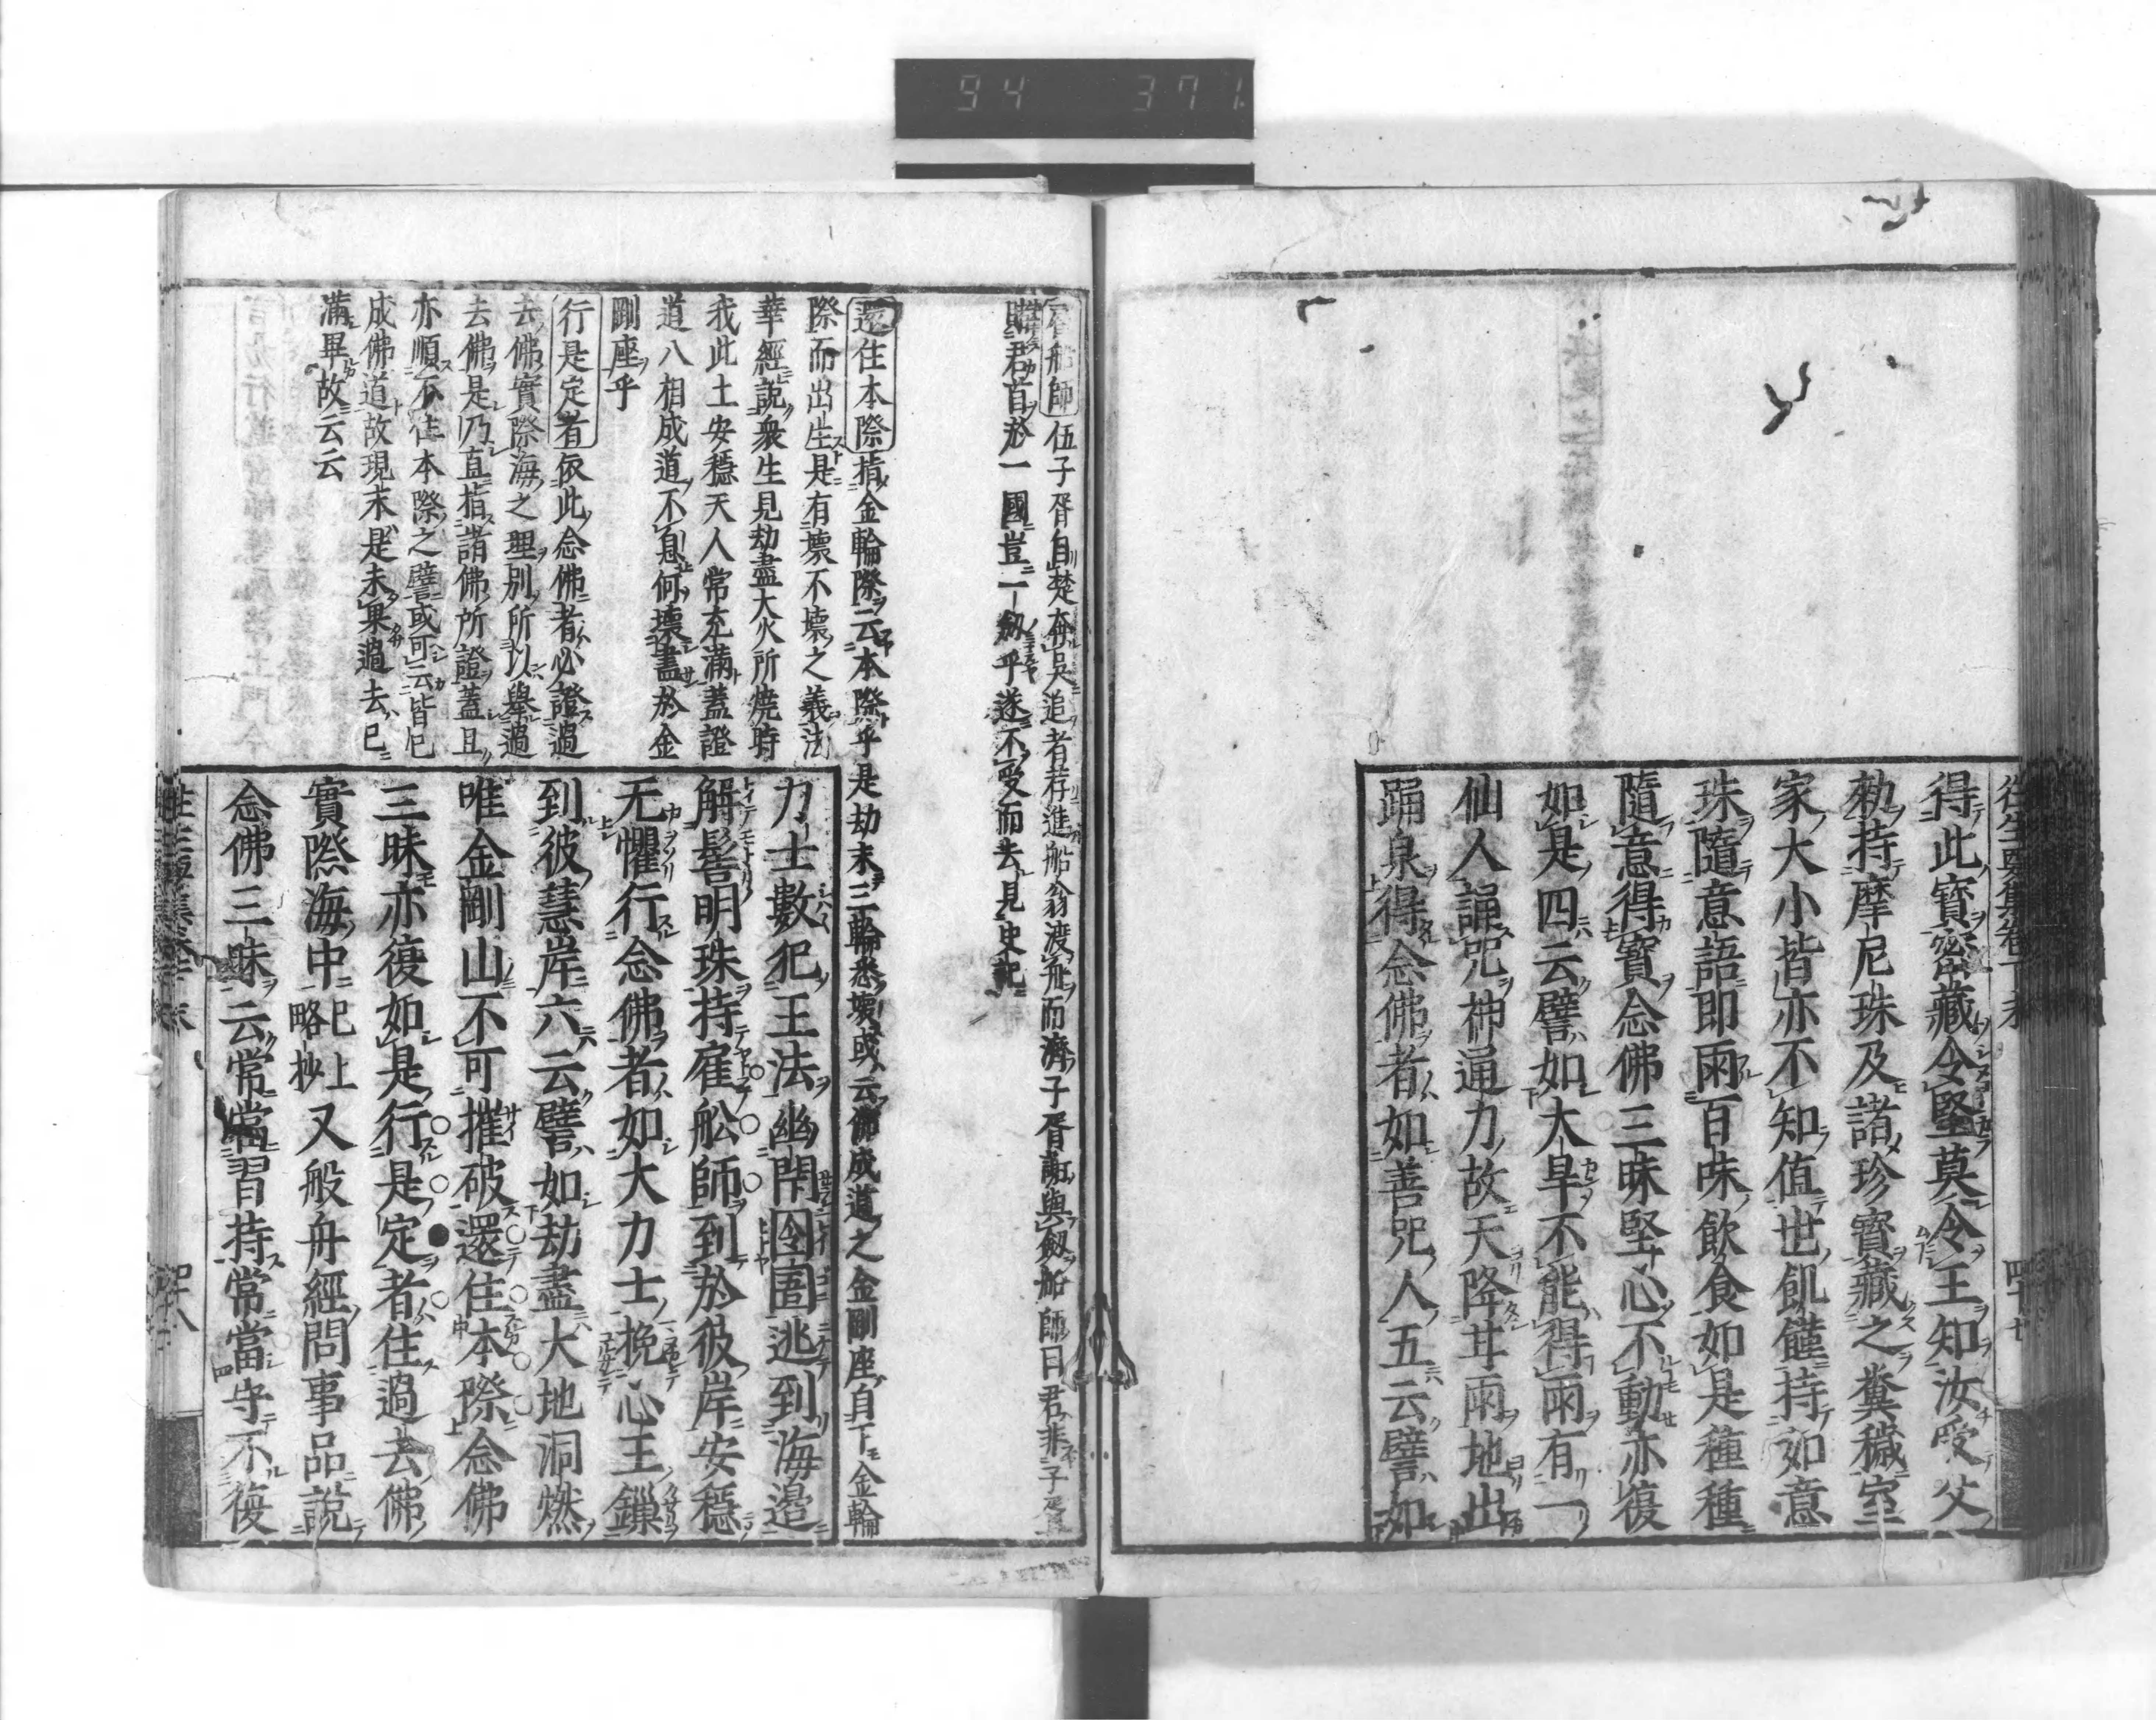 94 371
往生要集卷下末 四十七
得此寳密藏令堅莫令王知汝受父
勅持摩尼珠及諸珍寳藏之糞穢室
家大小皆亦不知值世飢饉持如意
珠隨意語即雨百味飲食如是種種
隨意得寳念佛三昧堅心不動亦復
如是四云譬如大旱不能得雨有一
仙人誦咒神通力故天降甘雨地出
踊泉得念佛者如善咒人五云譬如
船師伍子胥自楚奔呉追者若進船翁渡舩而濟子胥謝與劔船師曰君非子胥
購君首於一國豈一劔乎遂不受而去見史記
還住本際指金輪際云本際乎是劫末三輪悉壊或云佛成道之金剛座自下金輪
際而出生是有壊不壊之義法
華經説衆生見劫盡大火所燒時
我此土安穩天人常充滿蓋證
道八相成道不息何壊盡於金
剛座乎
行是定者依此念佛者必證過
去佛實際海之理別所以舉過
去佛是乃直指諸佛所證蓋且
亦順不住本際之譬或可云皆已
成佛道故現末是未果過去已
滿畢故云云
力士數犯王法幽閇囹圄逃到海邊
解髻明珠持雇舩師到於彼岸安穩
无懼行念佛者如大力士挽心王鏁
到彼慧岸六云譬如劫盡大地洞燃
唯金剛山不可摧破還住本際念佛
三昧亦復如是行是定者住過去佛
實際海中已上略抄又般舟經問事品說
念佛三昧云常當習持常當守不復